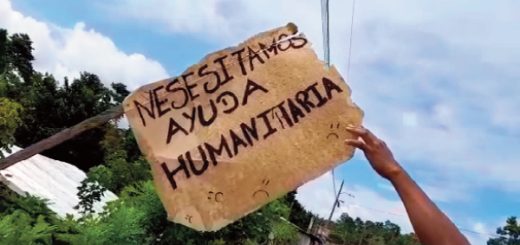 NESESITAMOS
AYUDA
HUMANITIARIA